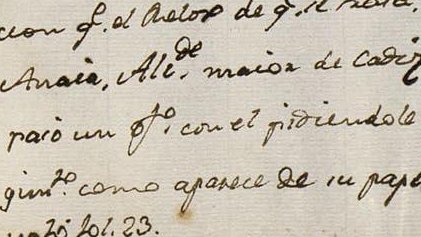 con q.e el Relox de q.e se trata.
Anaia, Alc.de maior de Cadiz
paso un of.o con el pidiendole
gim.to como aparece de su pape
fol. 23.